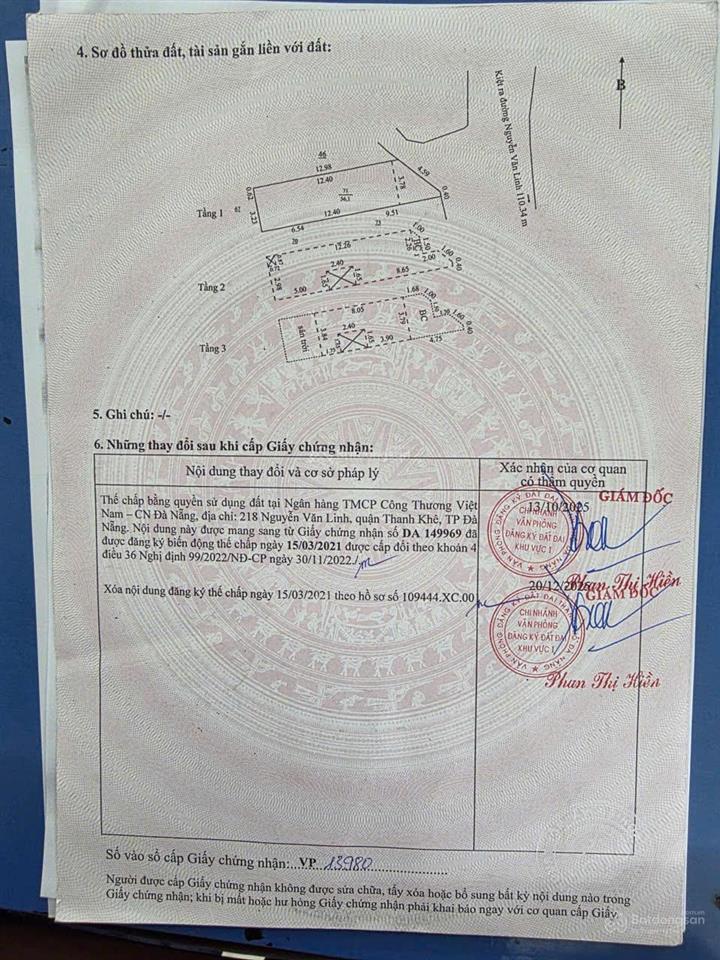 4. Sơ đồ thửa đất, tài sản gắn liền với đất:
B
Kiệt ra đường Nguyễn Văn Linh 110.34 m
46
12.98
12.40
4.59
0.62
62
71
36,1
3.78
0.40
Tầng 1
3.23
12.40
6.54
9.51
70
73
12.26
1.00
BC
2.26
1.50
2.00
1.60
0.40
0.72
Tầng 2
2.98
2.40
1.65
1.65
5.00
8.65
1.68
1.00
8.05
1.50
1.20
1.60
0.40
BC
3.79
Tầng 3
sân trời
3.84
2.40
1.65
3.90
4.75
5. Ghi chú: -/-
6. Những thay đổi sau khi cấp Giấy chứng nhận:
Nội dung thay đổi và cơ sở pháp lý
Xác nhận của cơ quan
có thẩm quyền
Thế chấp bằng quyền sử dụng đất tại Ngân hàng TMCP Công Thương Việt
Nam – CN Đà Nẵng, địa chỉ: 218 Nguyễn Văn Linh, quận Thanh Khê, TP Đà
Nẵng. Nội dung này được mang sang từ Giấy chứng nhận số DA 149969 đã
được đăng ký biến động thế chấp ngày 15/03/2021 được cấp đổi theo khoản 4
điều 36 Nghị định 99/2022/NĐ-CP ngày 30/11/2022./.
GIÁM ĐỐC
13/10/2025
CHI NHÁNH
VĂN PHÒNG
ĐĂNG KÝ ĐẤT ĐAI
KHU VỰC I
Phan Thị Hiền
Xóa nội dung đăng ký thế chấp ngày 15/03/2021 theo hồ sơ số 109444.XC.00
20/12/2025
GIÁM ĐỐC
CHI NHÁNH
VĂN PHÒNG
ĐĂNG KÝ ĐẤT ĐAI
KHU VỰC I
VĂN PHÒNG ĐĂNG KÝ ĐẤT ĐAI THÀNH PHỐ ĐÀ NẴNG
Phan Thị Hiền
Số vào sổ cấp Giấy chứng nhận: VP 13980
Người được cấp Giấy chứng nhận không được sửa chữa, tẩy xóa hoặc bổ sung bất kỳ nội dung nào trong
Giấy chứng nhận; khi bị mất hoặc hư hỏng Giấy chứng nhận phải khai báo ngay với cơ quan cấp Giấy
chứng nhận.
Batdongsan